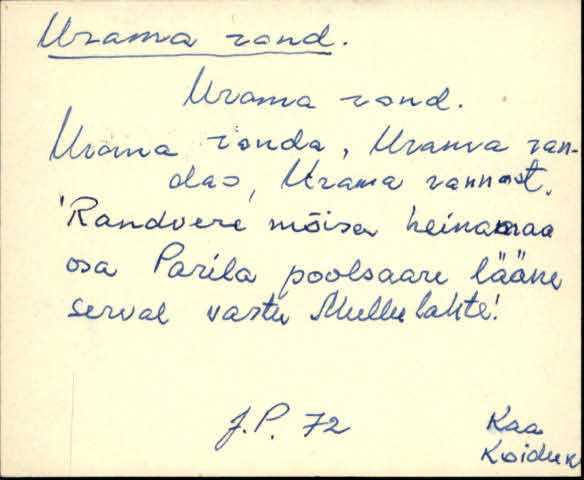 Urama rand.
Urama rand.
Urama randa, Urama ran-
das, Urama rannast.
'Randvere mõisa heinamaa
osa Parila poolsaare lääne
serval vastu Mullulahte.'
J.P. 72
Kaa
Koiduk